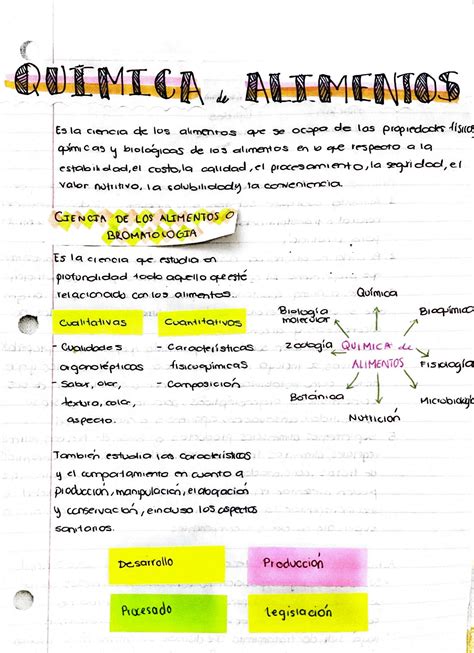 QUÍMICA de ALIMENTOS
Es la ciencia de los alimentos que se ocupa de las propiedades físicas
químicas y biológicas de los alimentos en lo que respecta a la
estabilidad, el costo, la calidad, el procesamiento, la seguridad, el
valor nutritivo, la solubilidad y la conveniencia.
CIENCIA DE LOS ALIMENTOS O
BROMATOLOGIA
Es la ciencia que estudia en
profundidad todo aquello que esté
relacionado con los alimentos.
Cualitativas
Cuantitativos
- Cualidades
organolépticas
- Sabor, olor,
textura, color,
aspecto.
- Características
fisicoquímicas
- Composición
Química
Biología
molecular
Bioquímica
Zoología
QUIMICA de
ALIMENTOS
Fisiología
Botánica
Microbiología
Nutrición
También estudia las características
y el comportamiento en cuanto a
producción, manipulación, elaboración
y conservación, e incluso los aspectos
sanitarios.
Desarrollo
Producción
Procesado
Legislación